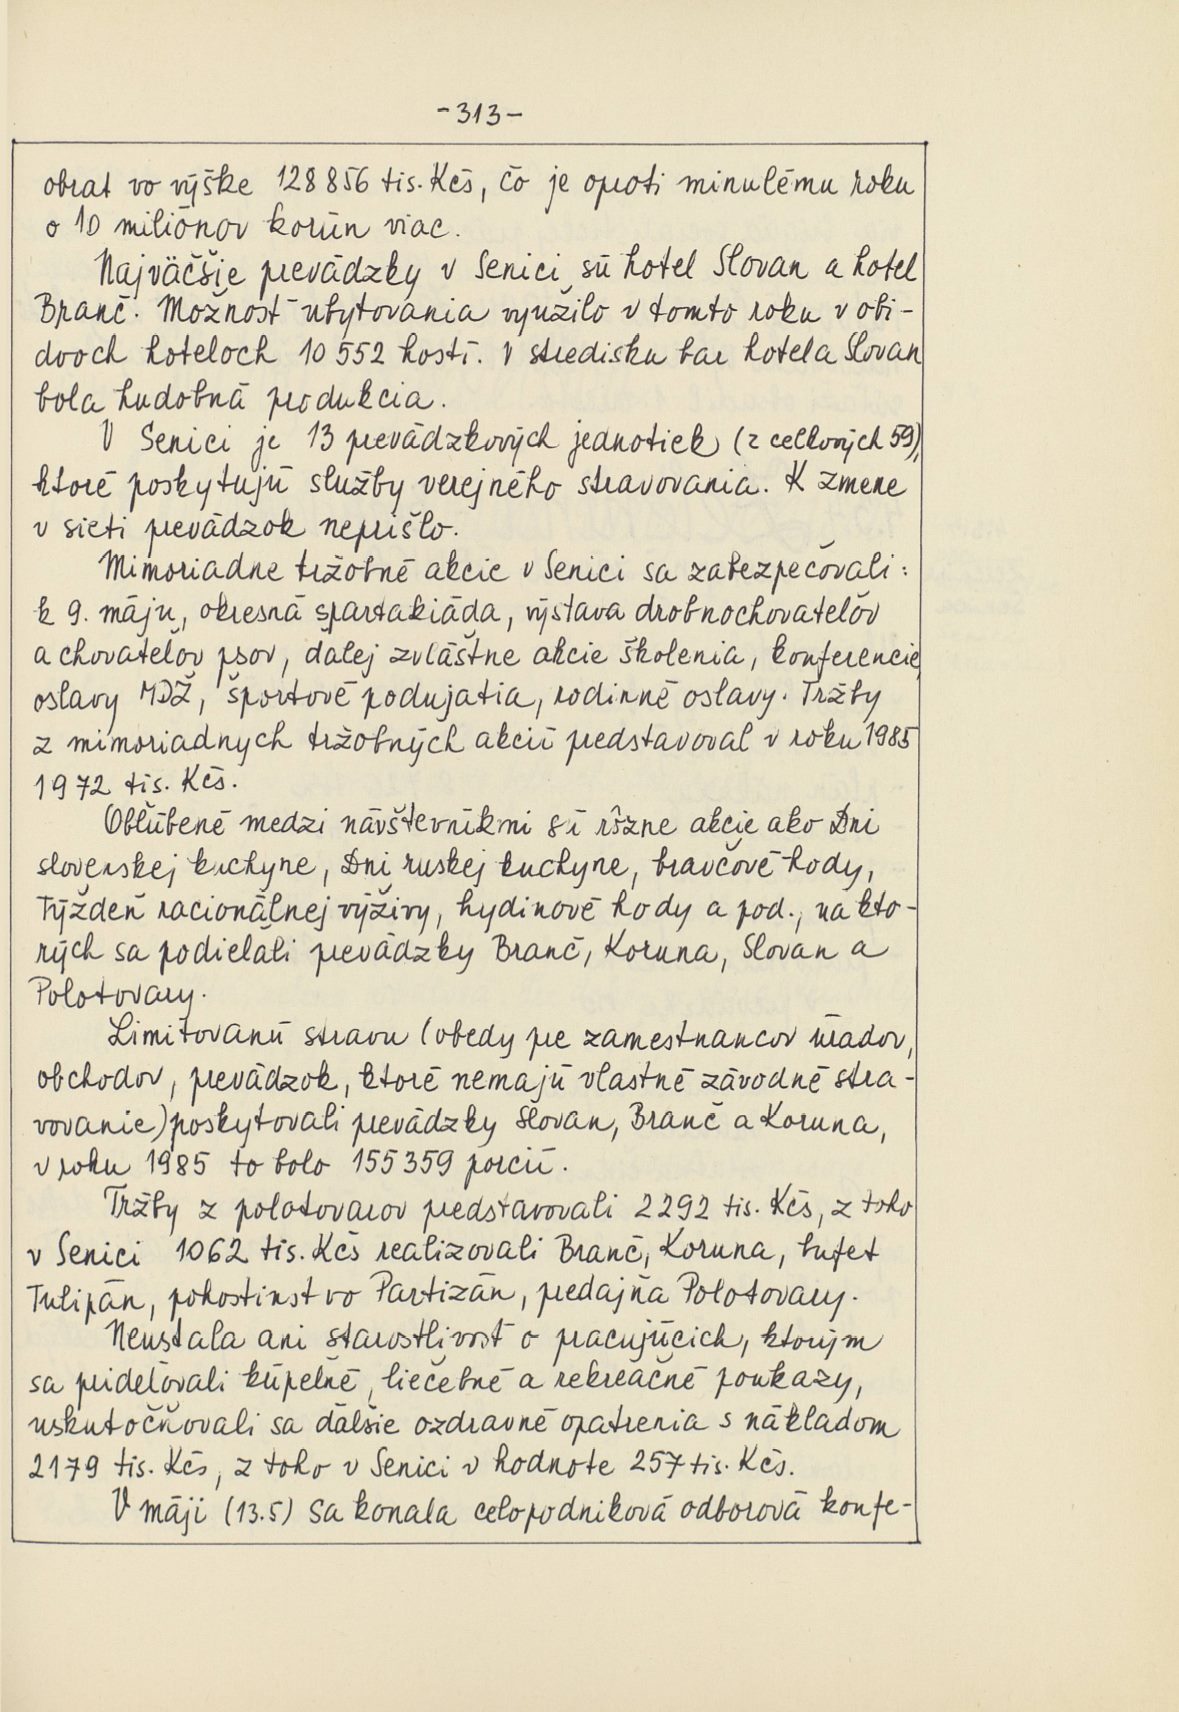 -313-
obrat vo výške 128 856 tis. Kčs, čo je oproti minulému roku
o 10 miliónov korún viac.
Najväčšie prevádzky v Senici sú hotel Slovan a hotel
Branč. Možnosť ubytovania využilo v tomto roku v obi-
dvoch hoteloch 10 552 hostí. V stredisku bar hotela Slovan
bola hudobná produkcia.
V Senici je 13 prevádzkových jednotiek (z celkových 59),
ktoré poskytujú služby verejného stravovania. K zmene
v sieti prevádzok neprišlo.
Mimoriadne tržobné akcie v Senici sa zabezpečovali:
k 9. máju, okresná spartakiáda, výstava drobnochovateľov
a chovateľov psov, ďalej zvláštne akcie školenia, konferencie,
oslavy MDŽ, športové podujatia, rodinné oslavy. Tržby
z mimoriadnych tržobných akcií predstavoval v roku 1985
1972 tis. Kčs.
Obľúbené medzi návštevníkmi sú rôzne akcie ako Dni
slovenskej kuchyne, Dni ruskej kuchyne, bravčové hody,
Týždeň racionálnej výživy, hydinové hody a pod., na kto-
rých sa podieľali prevádzky Branč, Koruna, Slovan a
Polotovary.
Limitovanú stravu (obedy pre zamestnancov úradov,
obchodov, prevádzok, ktoré nemajú vlastné závodné stra-
vovanie) poskytovali prevádzky Slovan, Branč a Koruna,
v roku 1985 to bolo 155 359 porcií.
Tržby z polotovarov predstavovali 2292 tis. Kčs, z toho
v Senici 1062 tis. Kčs realizovali Branč, Koruna, bufet
Tulipán, pohostinstvo Partizán, predajňa Polotovary.
Neustala ani starostlivosť o pracujúcich, ktorým
sa prideľovali kúpeľné, liečebné a rekreačné poukazy,
uskutočňovali sa ďalšie ozdravné opatrenia s nákladom
2179 tis. Kčs, z toho v Senici v hodnote 257 tis. Kčs.
V máji (13.5) sa konala celopodniková odborová konfe-